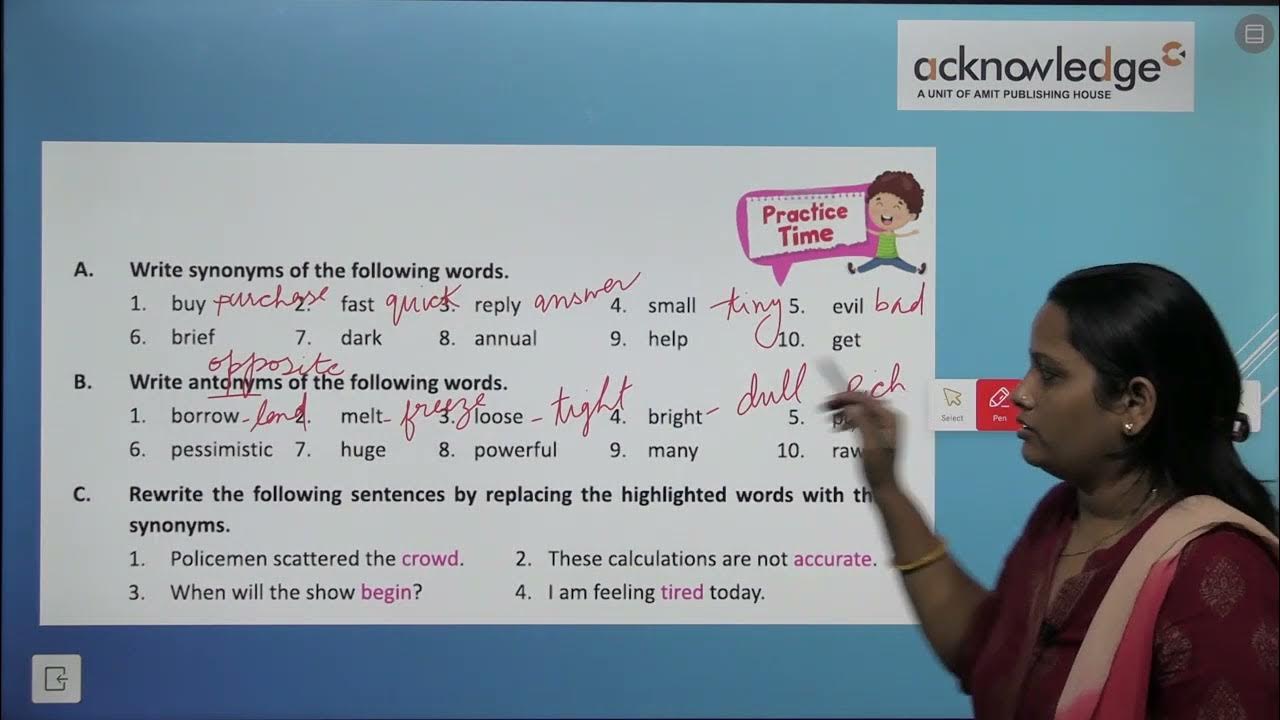 acknowledge
A UNIT OF AMIT PUBLISHING HOUSE
Practice
Time
A. Write synonyms of the following words.
1. buy purchase 2. fast quick 3. reply answer 4. small - tiny 5. evil bad
6. brief 7. dark 8. annual 9. help 10. get
opposite
B. Write antonyms of the following words.
1. borrow - lend 2. melt - freeze 3. loose - tight 4. bright - dull 5.
6. pessimistic 7. huge 8. powerful 9. many 10. raw
C. Rewrite the following sentences by replacing the highlighted words with
synonyms.
1. Policemen scattered the crowd. 2. These calculations are not accurate.
3. When will the show begin? 4. I am feeling tired today.
Select
Pen